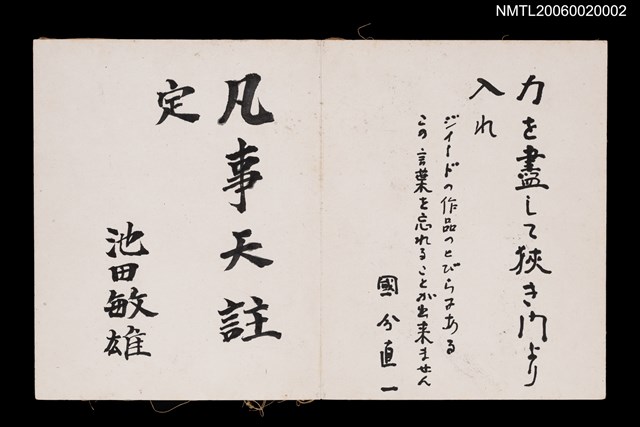 NMTL20060020002
力を盡して狹き門より
入れ
ジイードの作品のとびらにある
この言葉を忘れることが出来ません
國分直一
凡事天註
定
池田敏雄